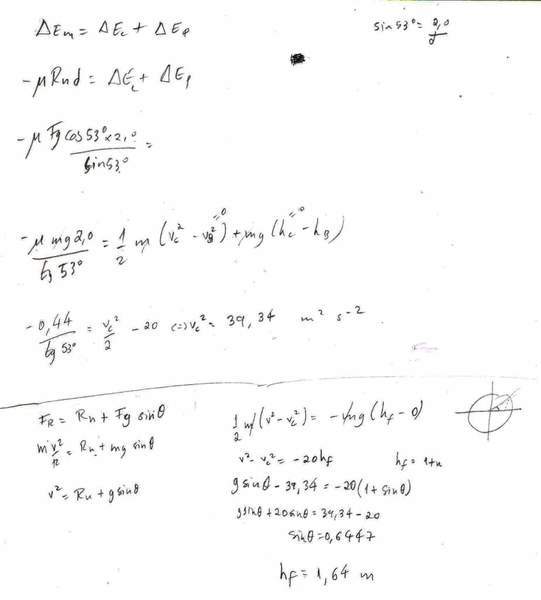 ΔEm = ΔEc + ΔEp
sin53° = 2,0/d
-μRnd = ΔEc + ΔEp
-μ Fg cos53° × 2,0 / sin53° =
-μmg2,0 / tg 53° = 1/2 m (vc² - vB²) + mg (hc - hB)
=0 =0
-0,44 / tg 53° = vc²/2 - 20 (=) vc² = 39,34 m² s-2
FR = Rn + Fg sinθ
m v²/r = Rn + mg sinθ
v² = Rn + g sinθ
1/2 m (v² - vc²) = -mg (hf - 0)
v² - vc² = -20hf
hf = 1+x
g sinθ - 39,34 = -20(1 + sinθ)
g sinθ + 20 sinθ = 39,34 - 20
sinθ = 0,6447
hf = 1,64 m